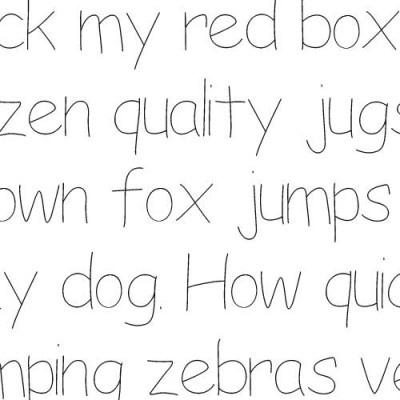 ck my red box
zen quality jugs
own fox jumps
y dog. How quic
mping zebras ve